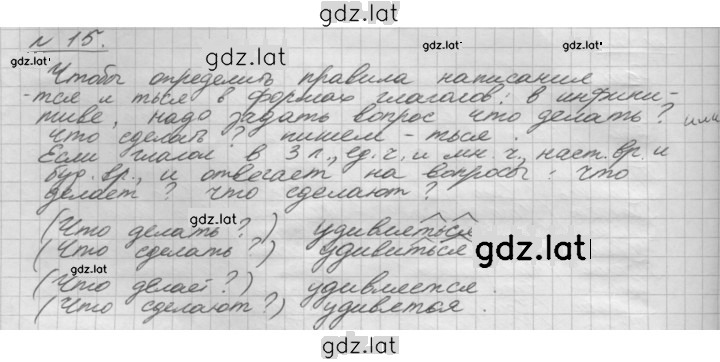 gdz.lat
№ 15.
gdz.lat
gdz.lat
gdz.lat
gdz.lat
Чтобы определить правила написания
-тся и ться в формах глаголов: в инфини-
тиве, надо задать вопрос что делать? или
что сделать? пишем -ться.
Если глагол в 3 л., ед. ч. и мн. ч., наст. вр. и
буд. вр., и отвечает на вопросы: что
делает? что сделают?
gdz.lat
(Что делать?) удивляться
(Что сделать?) удивиться
gdz.lat
gdz.lat
(Что делает?) удивляется.
(Что сделают?) удивятся.
gdz.lat